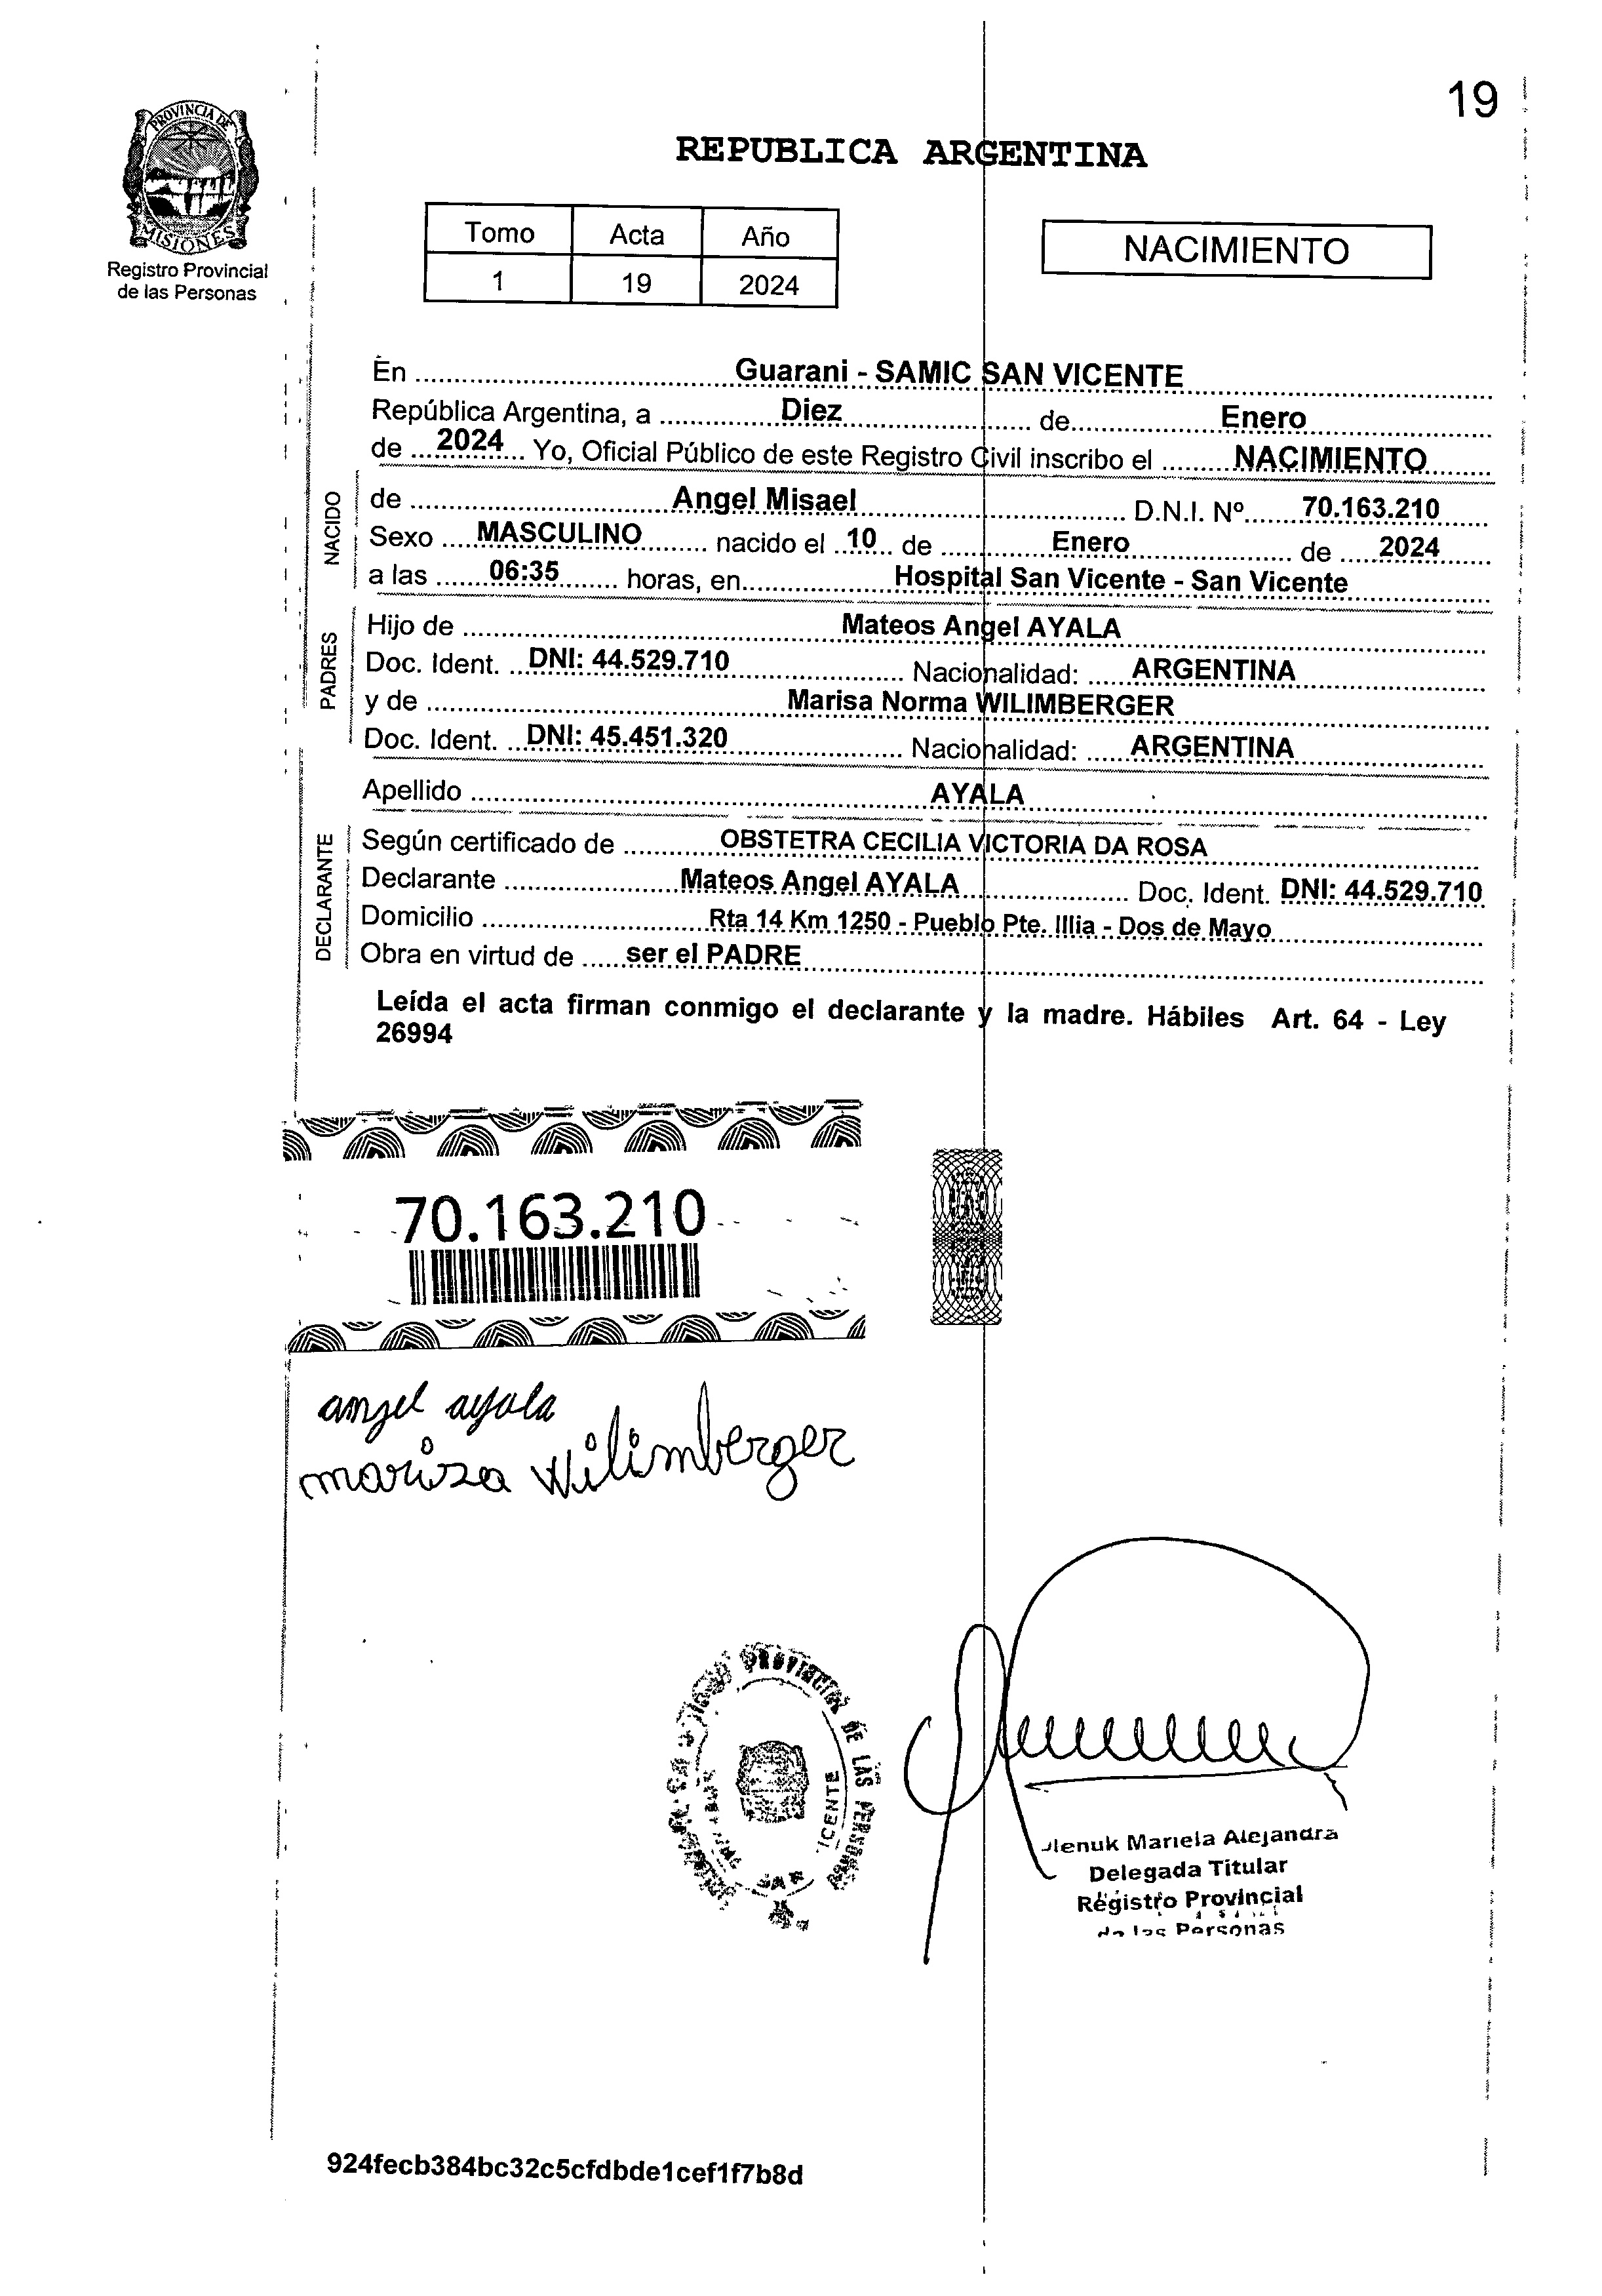 19
PROVINCIA DE
MISIONES
Registro Provincial
de las Personas
REPUBLICA ARGENTINA
Tomo Acta Año
1 19 2024
NACIMIENTO
En Guarani - SAMIC SAN VICENTE
República Argentina, a Diez de Enero
de 2024 Yo, Oficial Público de este Registro Civil inscribo el NACIMIENTO
NACIDO
de Angel Misael D.N.I. Nº 70.163.210
Sexo MASCULINO nacido el 10 de Enero de 2024
a las 06:35 horas, en Hospital San Vicente - San Vicente
PADRES
Hijo de Mateos Angel AYALA
Doc. Ident. DNI: 44.529.710 Nacionalidad: ARGENTINA
y de Marisa Norma WILIMBERGER
Doc. Ident. DNI: 45.451.320 Nacionalidad: ARGENTINA
Apellido AYALA
DECLARANTE
Según certificado de OBSTETRA CECILIA VICTORIA DA ROSA
Declarante Mateos Angel AYALA Doc. Ident. DNI: 44.529.710
Domicilio Rta 14 Km 1250 - Pueblo Pte. Illia - Dos de Mayo
Obra en virtud de ser el PADRE
Leída el acta firman conmigo el declarante y la madre. Hábiles Art. 64 - Ley
26994
70.163.210
angel ayala
marisa Wilimberger
PROVINCIAL DE LAS PERSONAS
Mariela Alejandra
Delegada Titular
Registro Provincial
de las Personas
924fecb384bc32c5cfdbde1cef1f7b8d